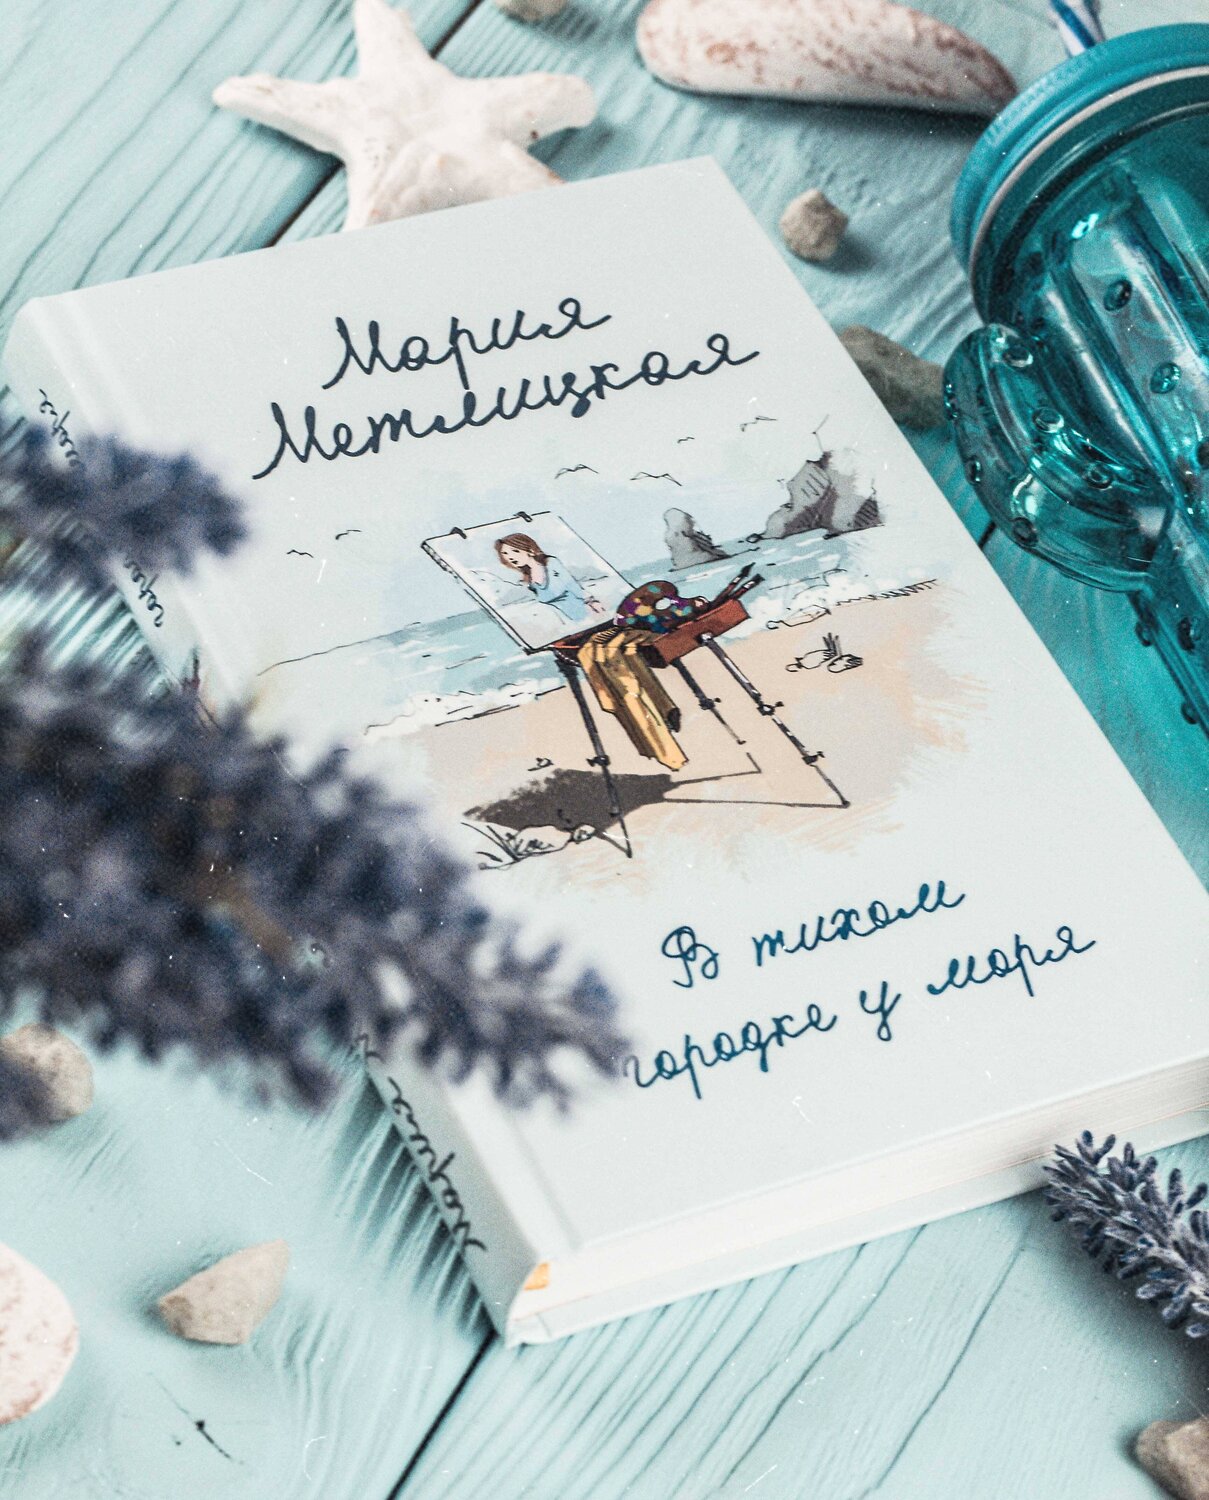 Мария
Метлицкая
В тихом
городке у моря